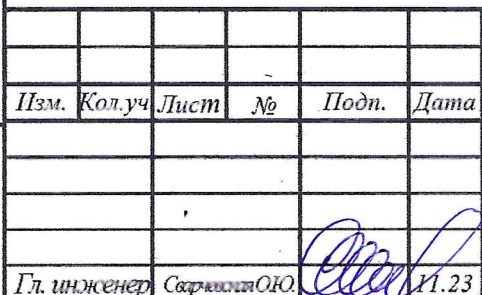 Изм. Кол.уч Лист № Подп. Дата
Гл. инженер О.Ю. 11.23